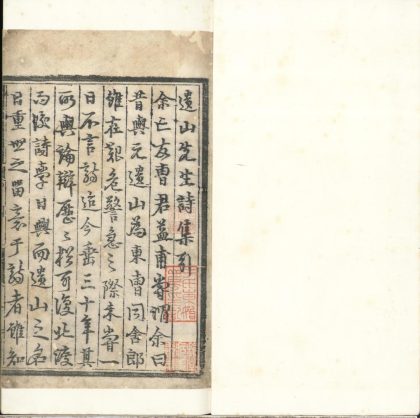 遺山先生詩集引
余亡友曹君益甫嘗謂余曰
昔與元遺山為東曹同舍郎
雖在艱危警急之際未嘗一
日不言詩迨今垂三十年其
所與論辯歷々猶可復北渡
而後詩學日興而遺山之名
日重世之留意于詩者雖知